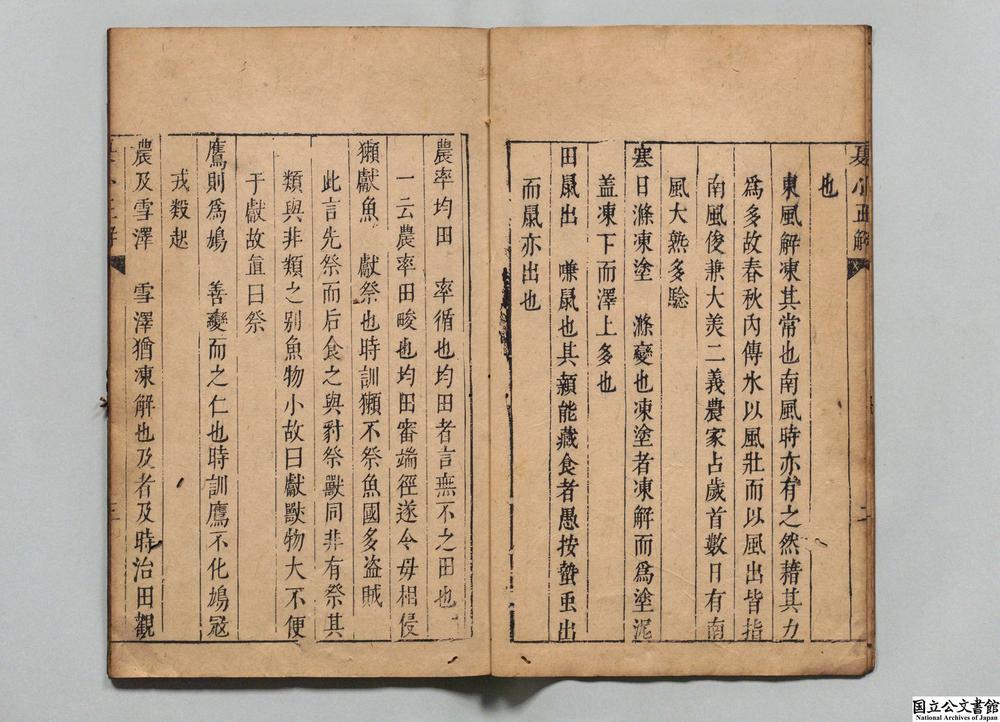 夏小正解
二
也
東風解凍其常也南風時亦有之然藉其力
爲多故春秋內傳水以風壯而以風出皆指
南風俊兼大美二義農家占歲首數日有南
風大熟多驗
寒日滌凍塗　滌變也凍塗者凍解而爲塗泥
盖凍下而澤上多也
田鼠出　嗛鼠也其頬能藏食者愚按蟄虫出
而鼠亦出也
農率均田　率循也均田者言無不之田也
一云農率田畯也均田審端徑遂令毋相侵
獺獻魚　獻祭也時訓獺不祭魚國多盗賊
此言先祭而后食之與豺祭獸同非有祭其
類與非類之别魚物小故曰獻獸物大不便
于獻故直曰祭
鷹則爲鳩　善變而之仁也時訓鷹不化鳩寇
戎殺起
農及雪澤　雪澤猶凍解也及者及時治田觀
三
国立公文書館
National Archives of Japan